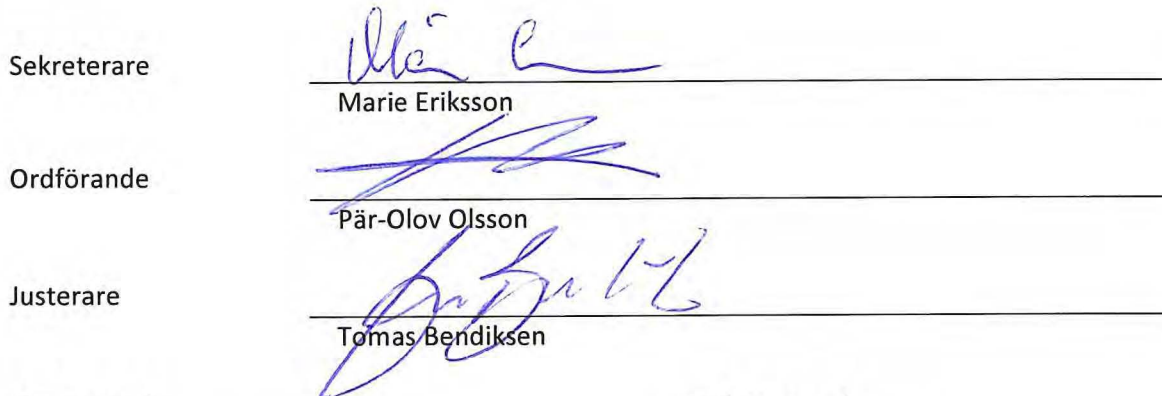 Sekreterare
Marie Eriksson
Ordförande
Pär-Olov Olsson
Justerare
Tomas Bendiksen